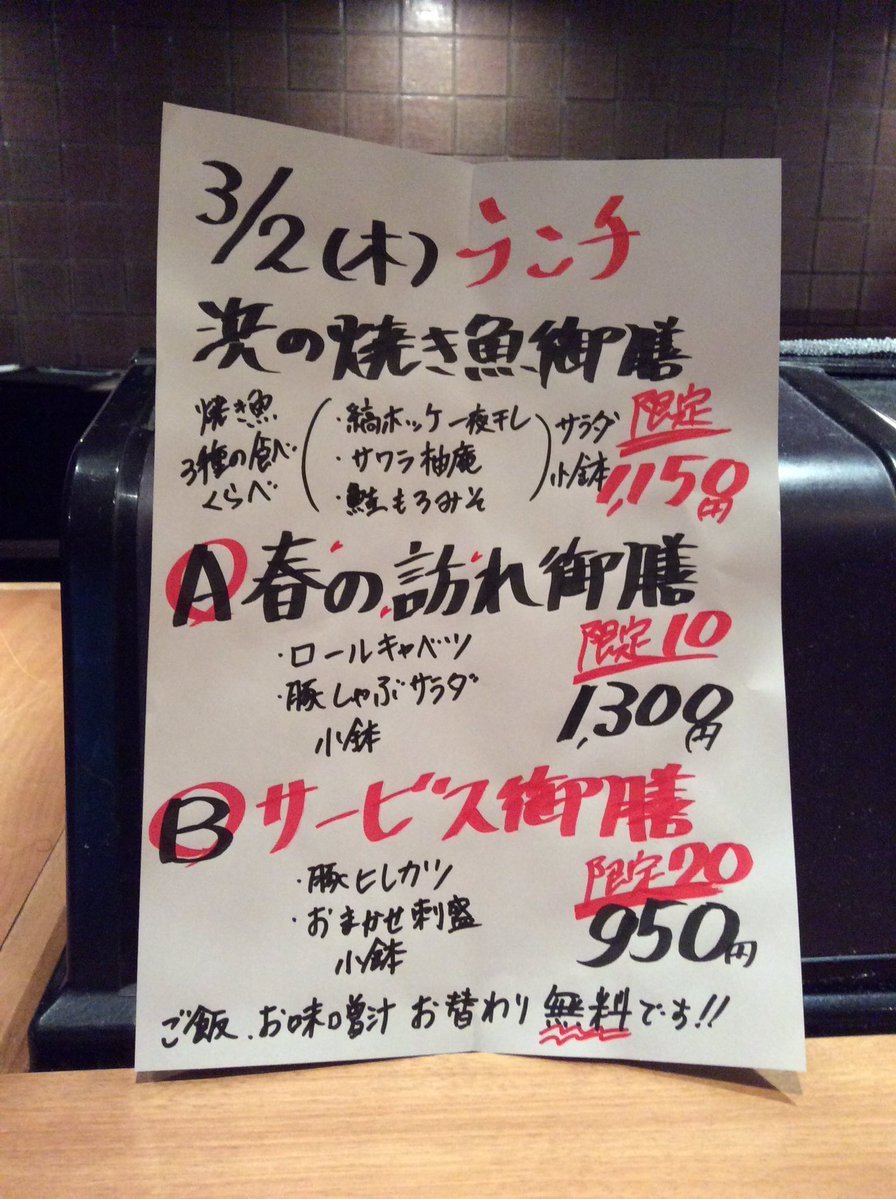 3/2(木) らンチ
浜の焼き魚御膳
焼き魚
3種の食べ
くらべ
・縞ホッケ一夜干し
・サワラ柚庵
・鮭もろみそ
サラダ
小鉢
限定
1,150円
A 春の訪れ御膳
・ロールキャベツ
・豚しゃぶサラダ
小鉢
限定10
1,300円
B サービス御膳
・豚ヒレカツ
・おまかせ刺盛
小鉢
限定20
950円
ご飯、お味噌汁 お替わり 無料です!!